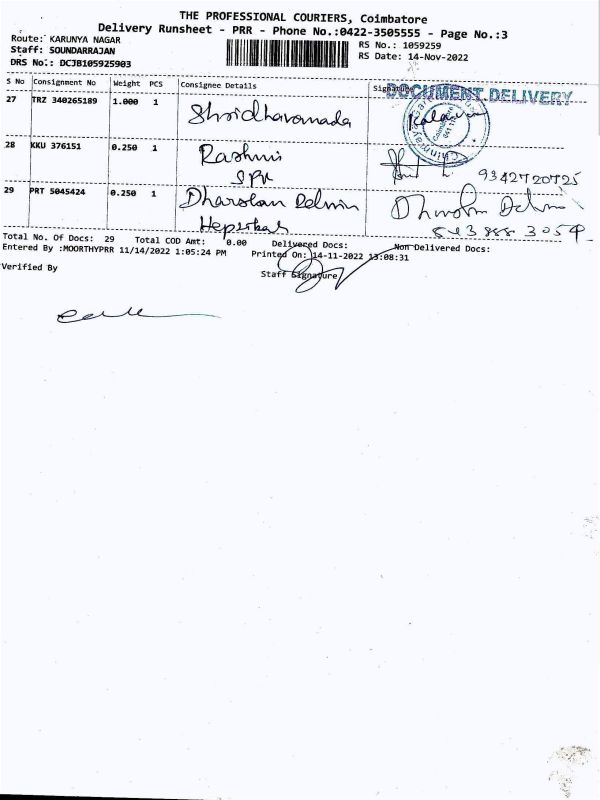 THE PROFESSIONAL COURIERS, Coimbatore
Delivery Runsheet - PRR - Phone No.:0422-3505555 - Page No.:3
Route: KARUNYA NAGAR
Staff: SOUNDARRAJAN
DRS No.: DCJB105925903
RS No.: 1059259
RS Date: 14-Nov-2022
S No Consignment No Weight PCS Consignee Details Signature
DOCUMENT DELIVERY
27 TRZ 340265189 1.000 1 Shridharamada
28 KKU 376151 0.250 1 Rashmi
9342720725
29 PRT 5045424 0.250 1
Total No. Of Docs: 29 Total COD Amt: 0.00 Delivered Docs: Non Delivered Docs:
Entered By :MOORTHYPRR 11/14/2022 1:05:24 PM Printed On: 14-11-2022 13:08:31
Verified By Staff Signature